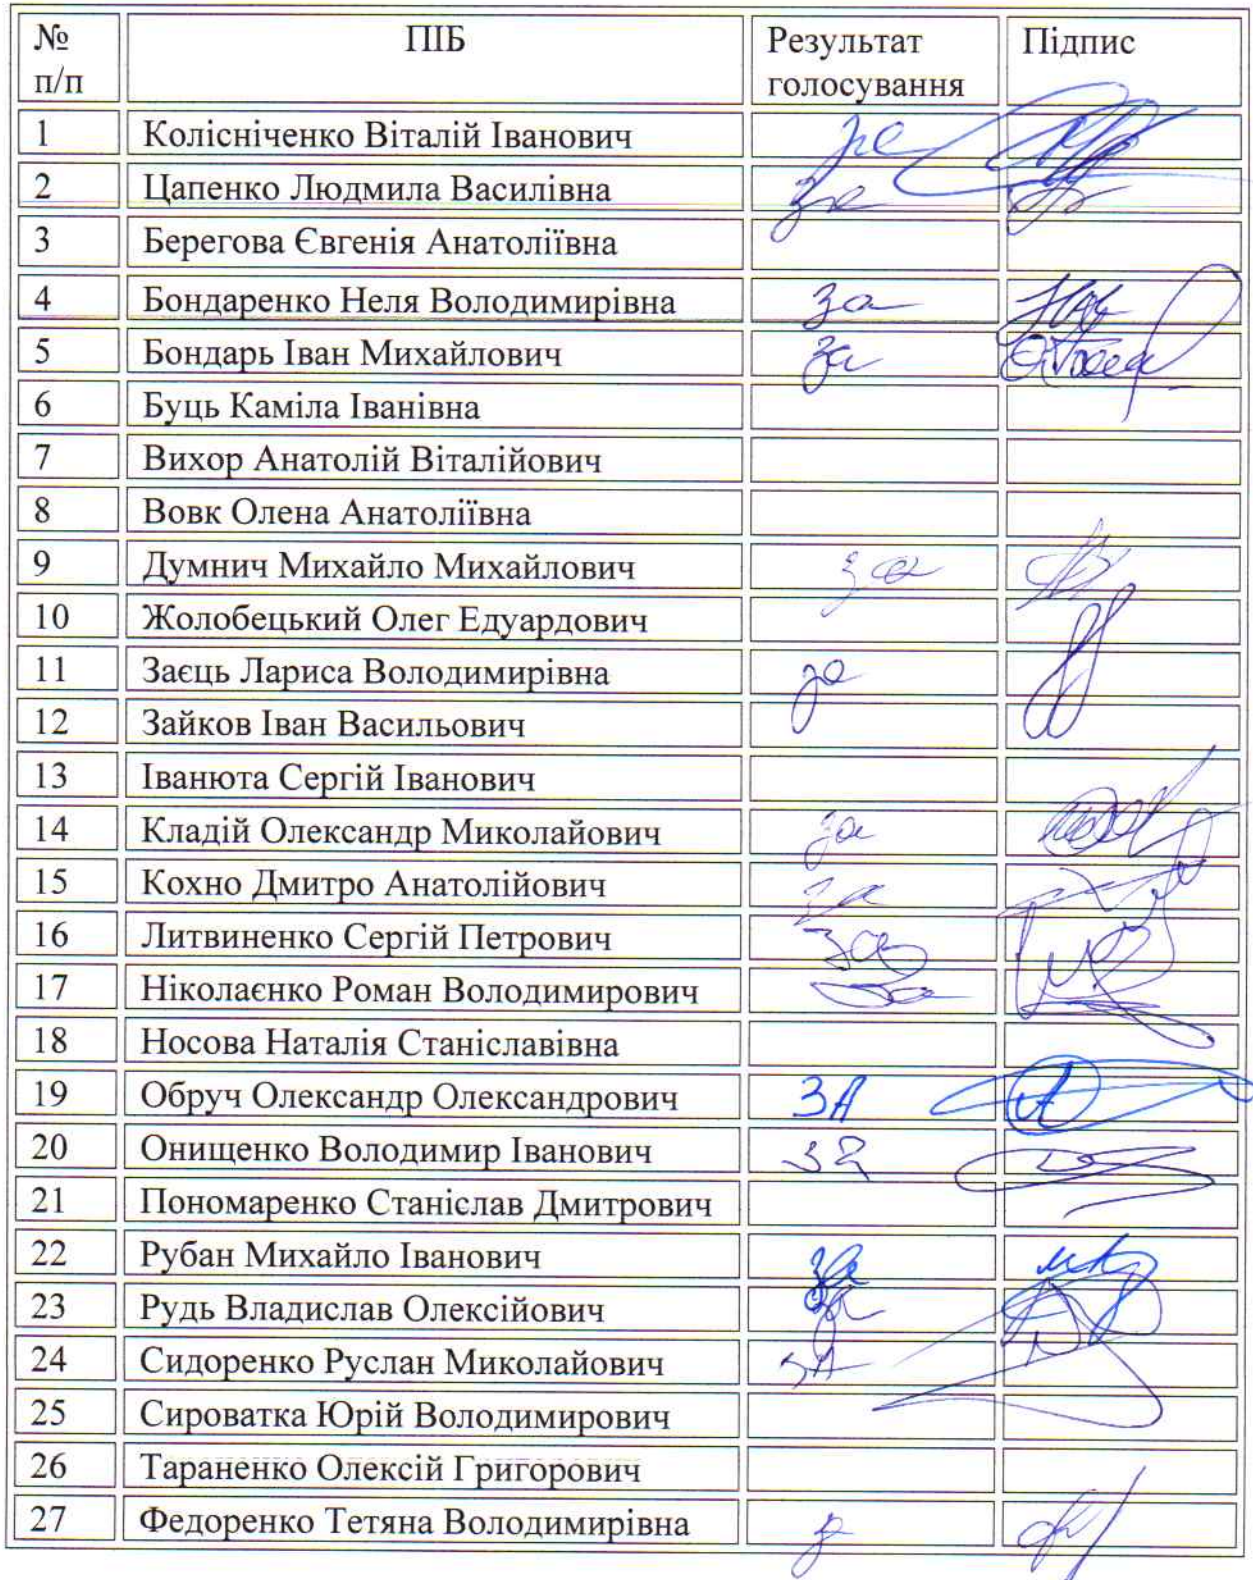 № п/п ПІБ Результат голосування Підпис
1 Колісніченко Віталій Іванович за
2 Цапенко Людмила Василівна за
3 Берегова Євгенія Анатоліївна
4 Бондаренко Неля Володимирівна за
5 Бондарь Іван Михайлович за
6 Буць Каміла Іванівна
7 Вихор Анатолій Віталійович
8 Вовк Олена Анатоліївна
9 Думнич Михайло Михайлович за
10 Жолобецький Олег Едуардович
11 Заєць Лариса Володимирівна за
12 Зайков Іван Васильович
13 Іванюта Сергій Іванович
14 Кладій Олександр Миколайович за
15 Кохно Дмитро Анатолійович за
16 Литвиненко Сергій Петрович за
17 Ніколаєнко Роман Володимирович за
18 Носова Наталія Станіславівна
19 Обруч Олександр Олександрович ЗА
20 Онищенко Володимир Іванович за
21 Пономаренко Станіслав Дмитрович
22 Рубан Михайло Іванович за
23 Рудь Владислав Олексійович за
24 Сидоренко Руслан Миколайович зА
25 Сироватка Юрій Володимирович
26 Тараненко Олексій Григорович
27 Федоренко Тетяна Володимирівна